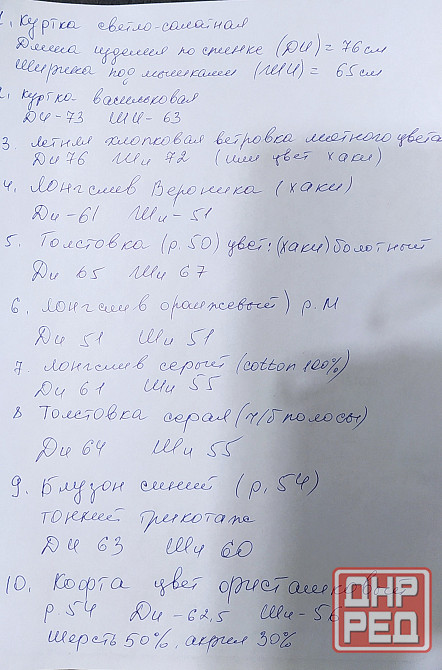 1. Куртка светло-салатная
Длина изделия по спинке (ДИ) = 76 см
Ширина под мышками (ШИ) = 65 см
2. Куртка васильковая
Ди-73 Ши-63
3. Летняя хлопковая ветровка мятного цвета
Ди 76 Ши 72 (или цвет хаки)
4. Лонгслив Вероника (хаки)
Ди-61 Ши-51
5. Толстовка (р.50) цвет: (хаки) болотный
Ди 65 Ши 67
6. Лонгслив оранжевый) р.М
Ди 51 Ши 51
7. Лонгслив серый (cotton 100%)
Ди 61 Ши 55
8 Толстовка серая (ч/б полосы)
Ди 64 Ши 55
9. Блузон синий (р.54)
тонкий трикотаж
Ди 63 Ши 60
10. Кофта цвет фисташковый
р.54 Ди-62,5 Ши-56
шерсть 50%, акрил 30%
ДНР
РЕД